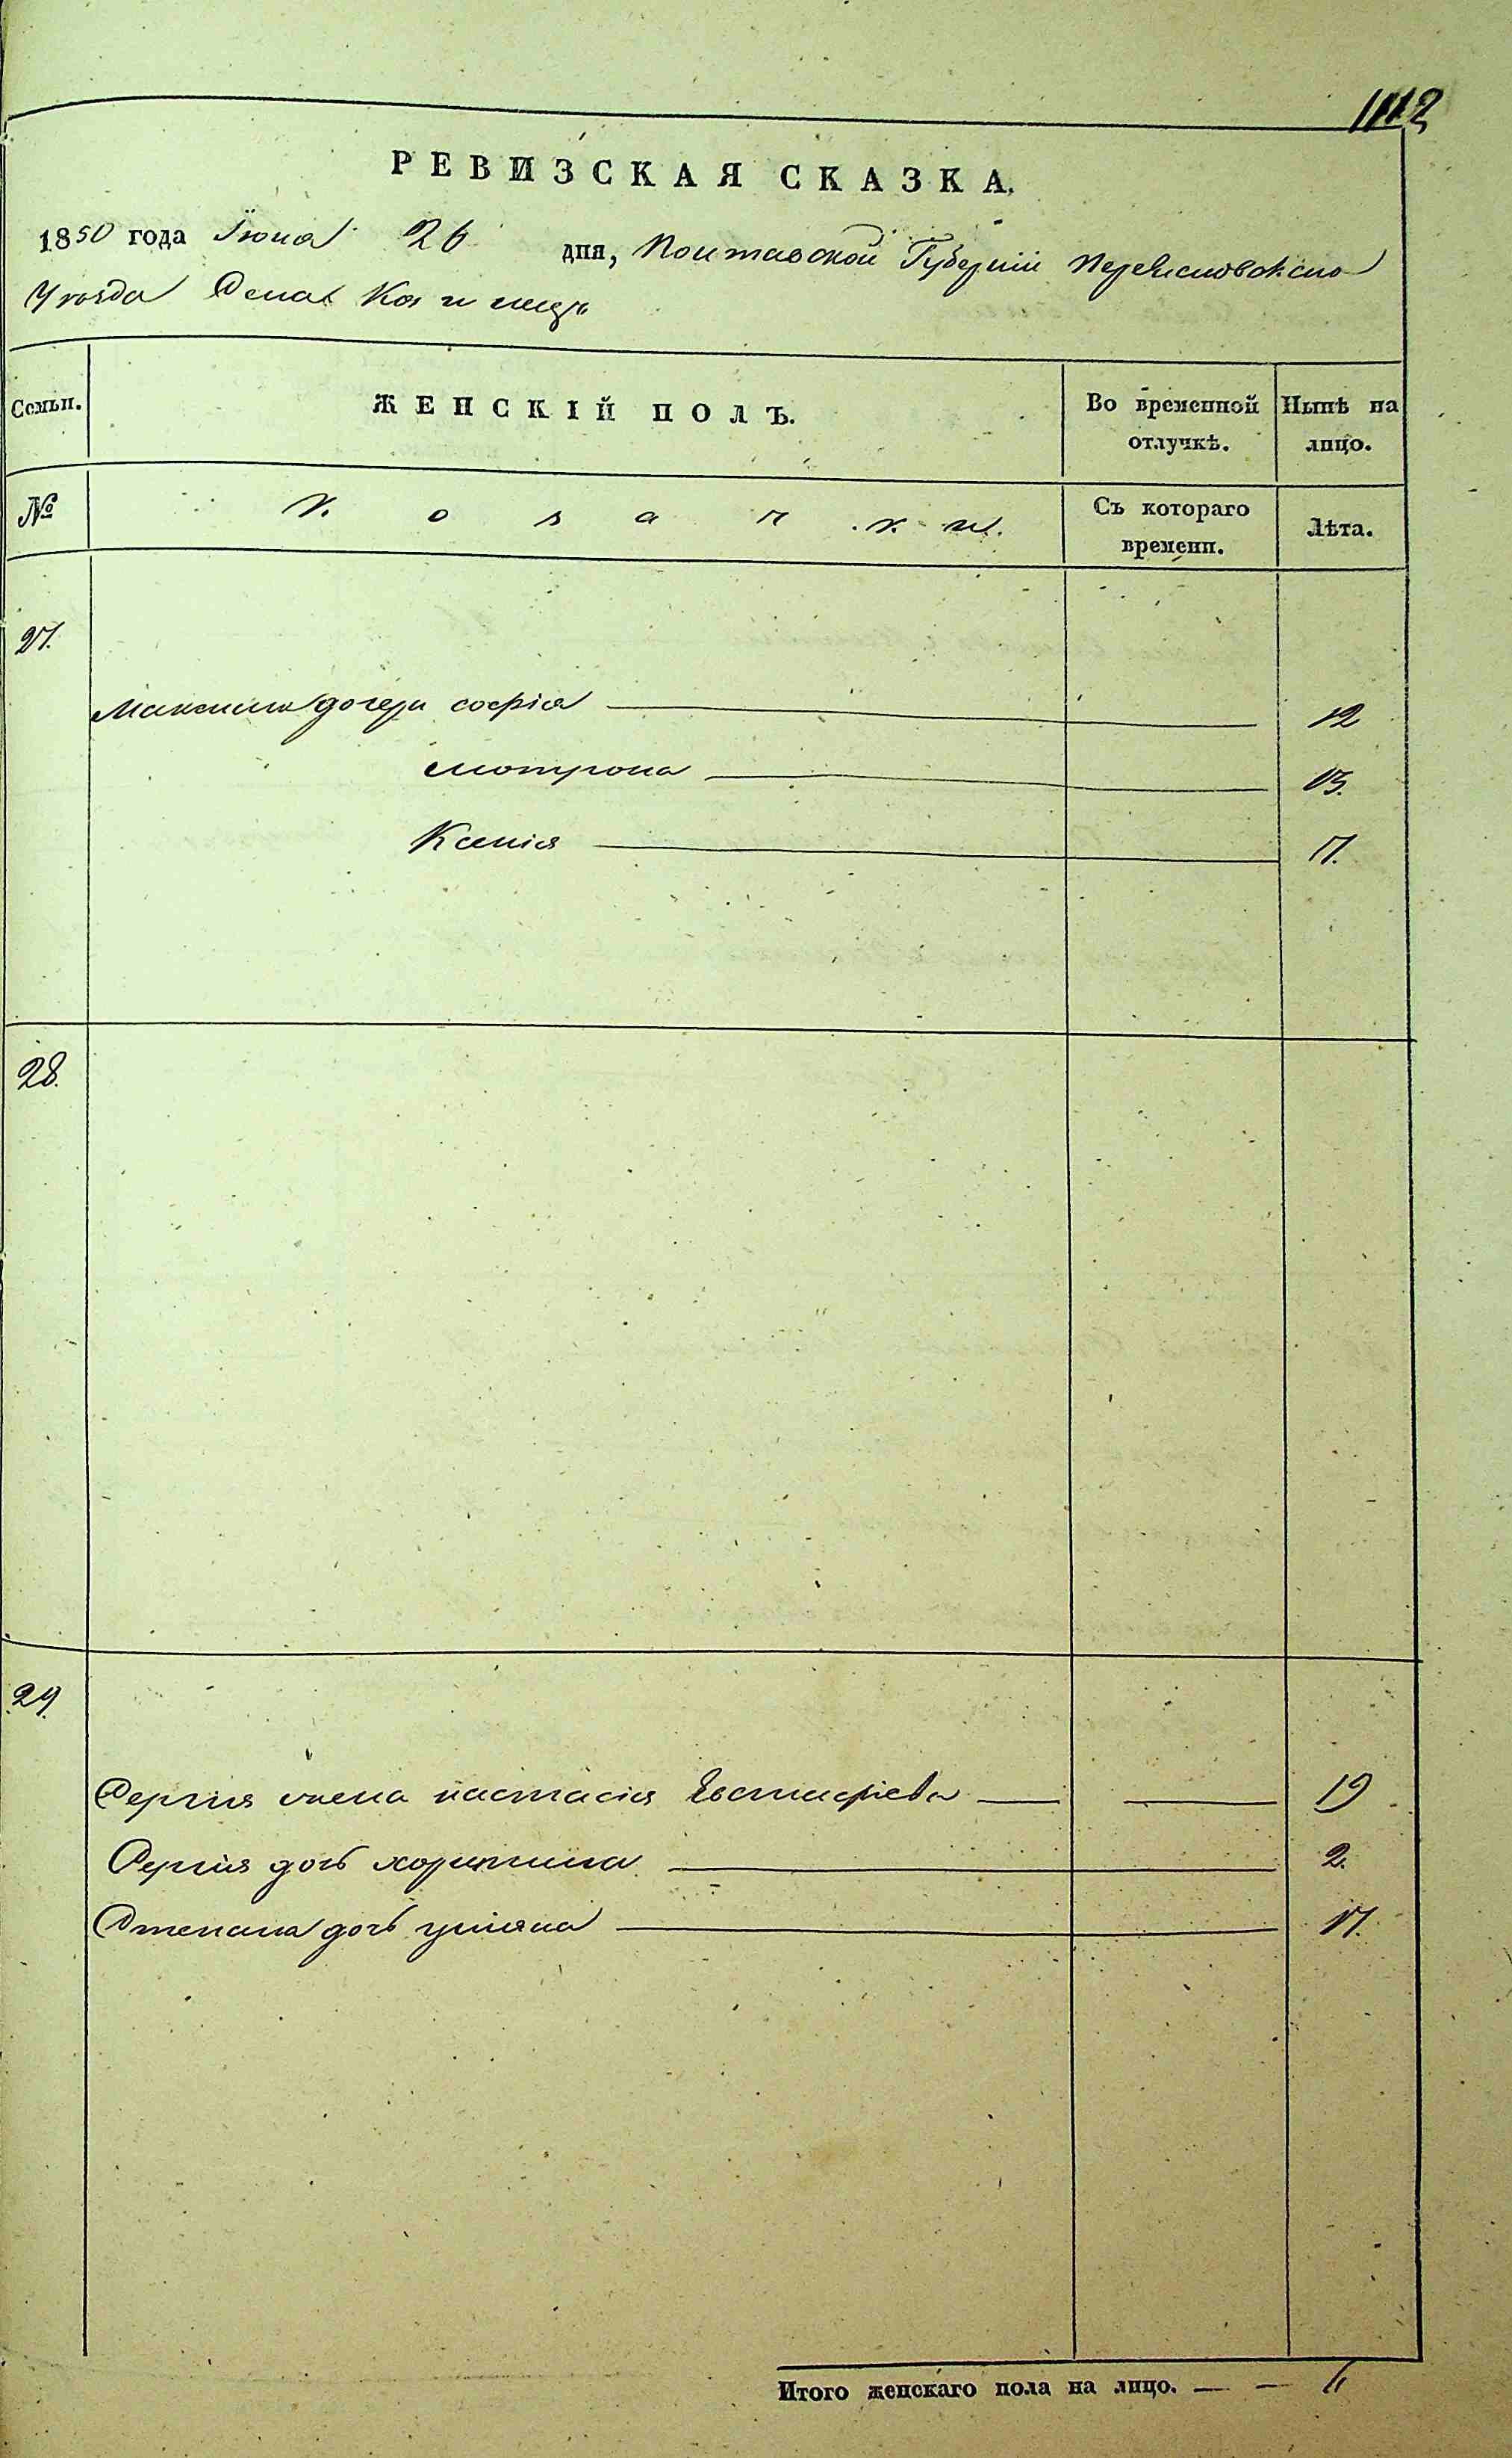 1112
РЕВИЗСКАЯ СКАЗКА.
1850 года Іюня 26 дня, Полтавской Губерніи Переяславскаго
Уезда Села
Семьи. ЖЕНСКІЙ ПОЛЪ. Во временной отлучкѣ. Нынѣ на лицо.
№ Козачки. Съ котораго времени. Лѣта.
27.
Максима дочери софія — 12
мотрона — 13.
Ксенія — 11.
28.
29.
Сергия жена настасія Евстафіева — 19
Сергия дочь хористина — 2.
Степана дочь уліяна — 17.
Итого женскаго пола на лицо. — — 6